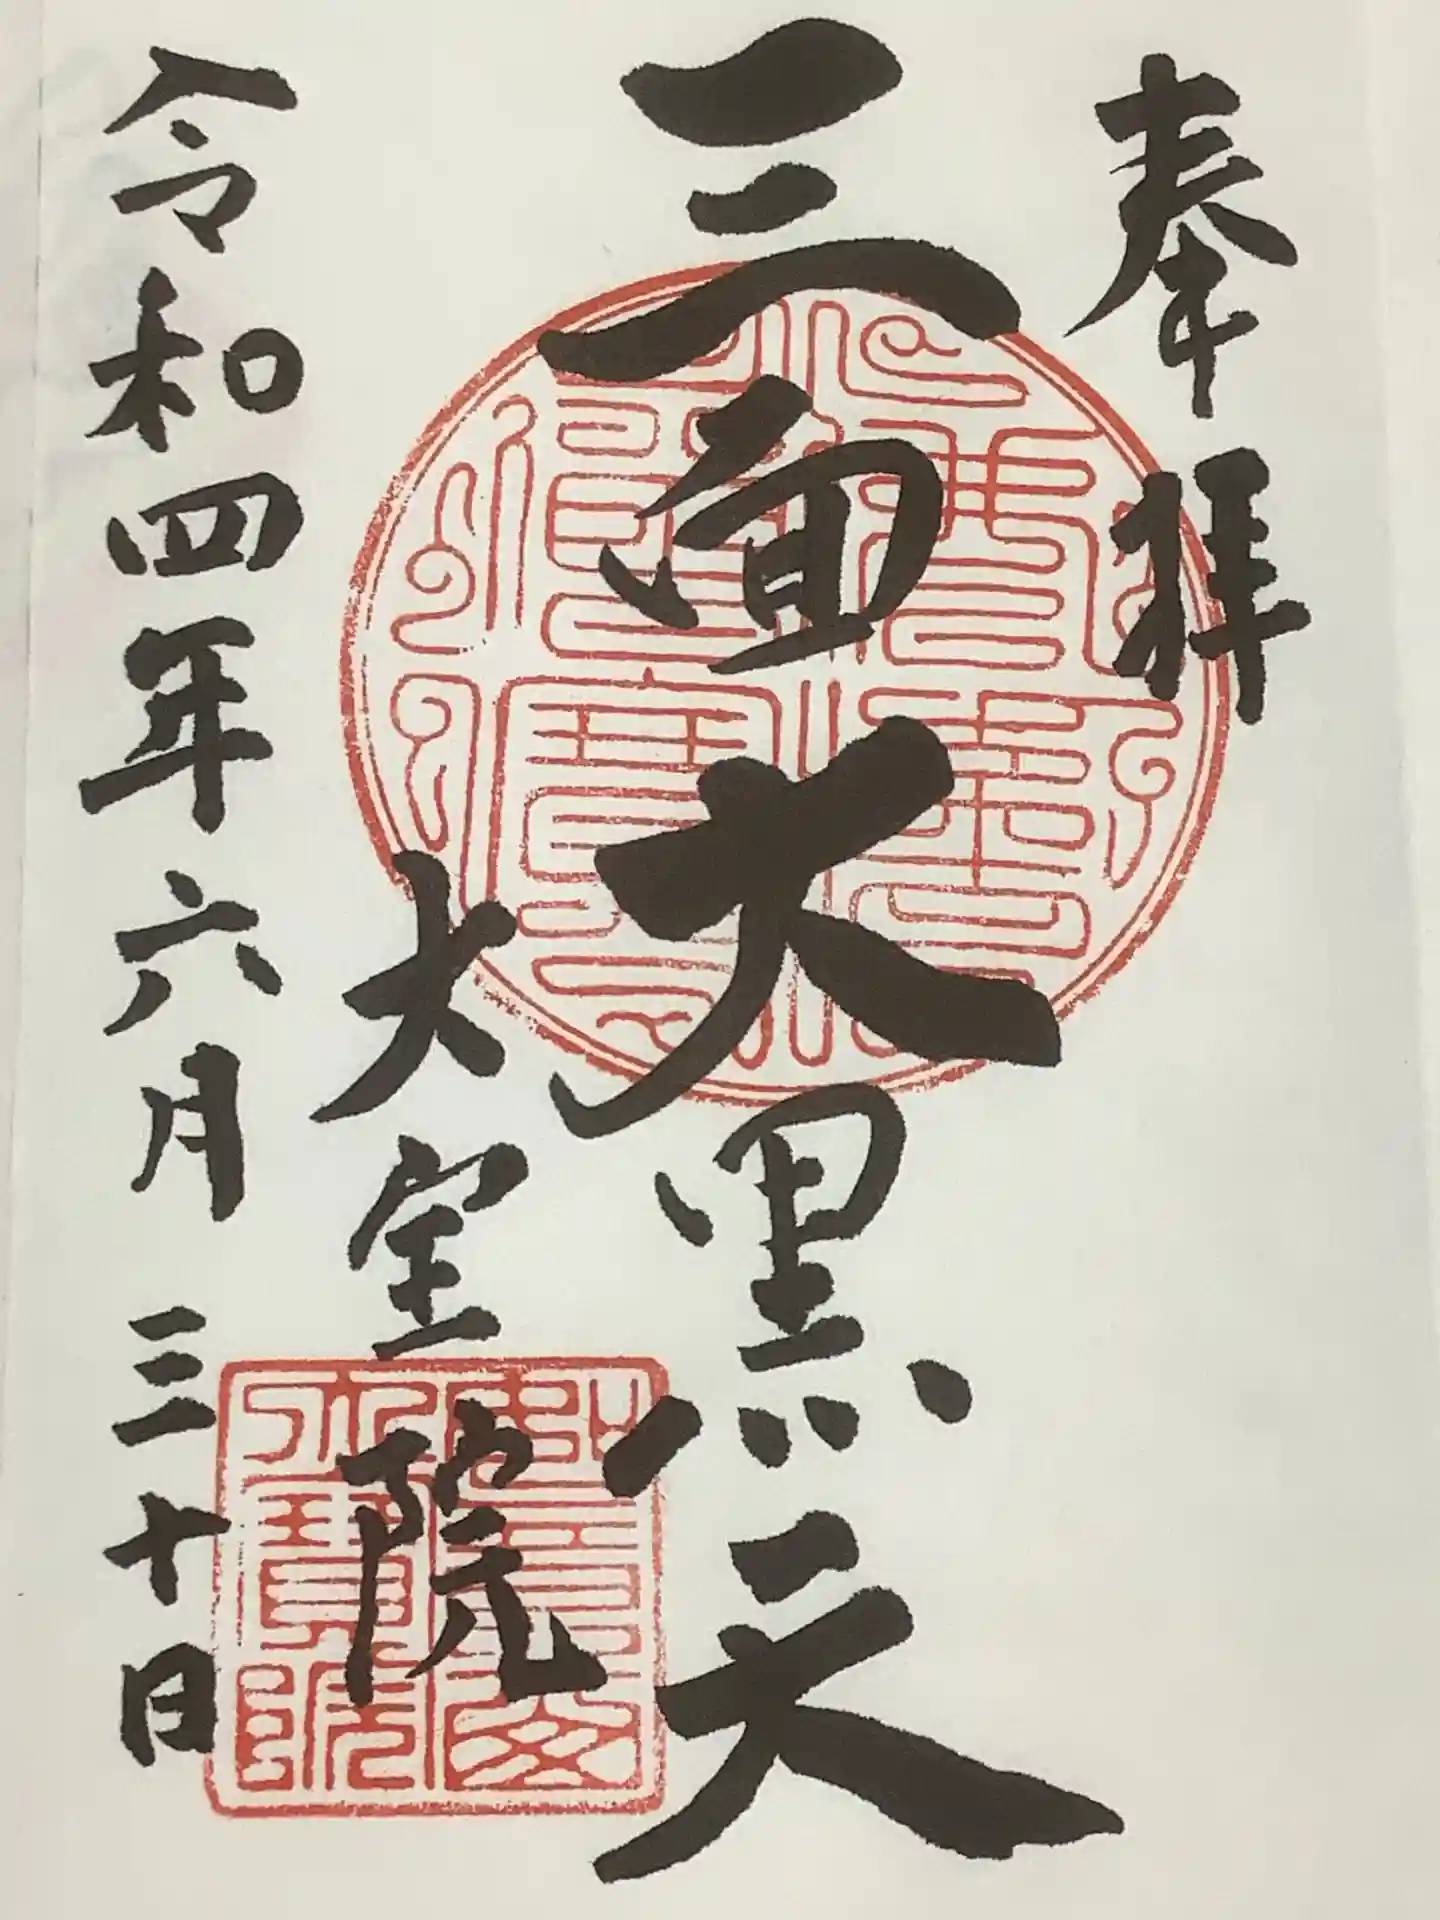 奉拝
三面大黒天
大宝院
令和四年六月三十日